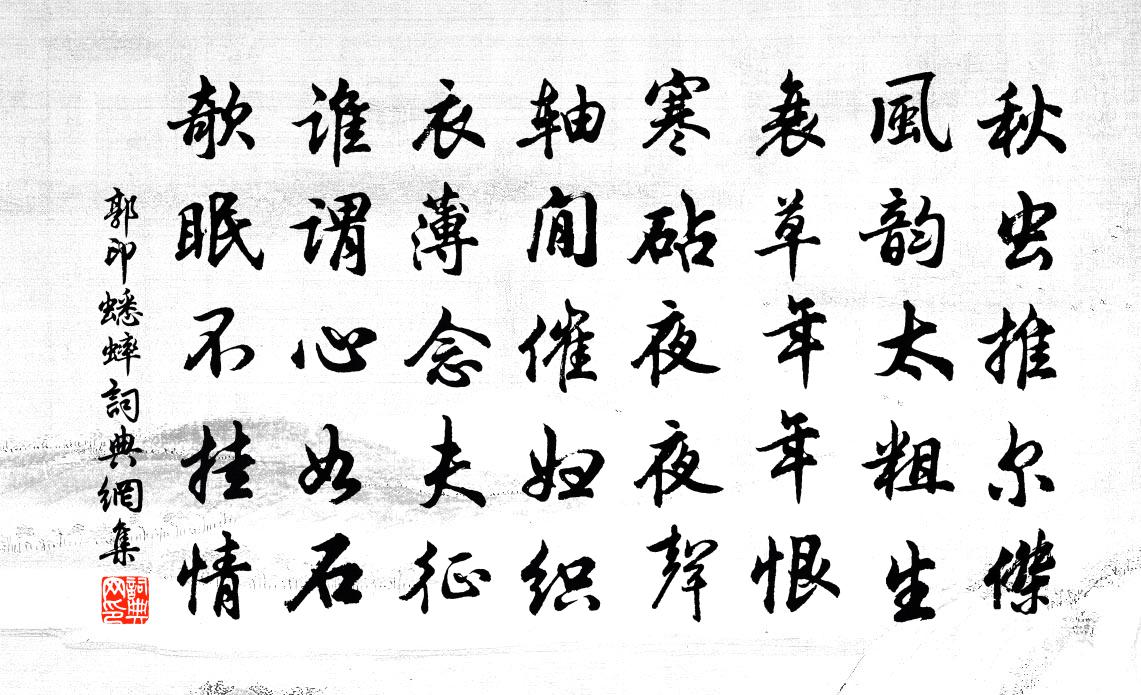 秋虫推尔傑
風韵太粗生
衰草年年恨
寒砧夜夜聲
軸閒催妇织
衣薄念夫征
谁谓心如石
欹眠不挂情
郭印蟋蟀詞典網集
詞典网印